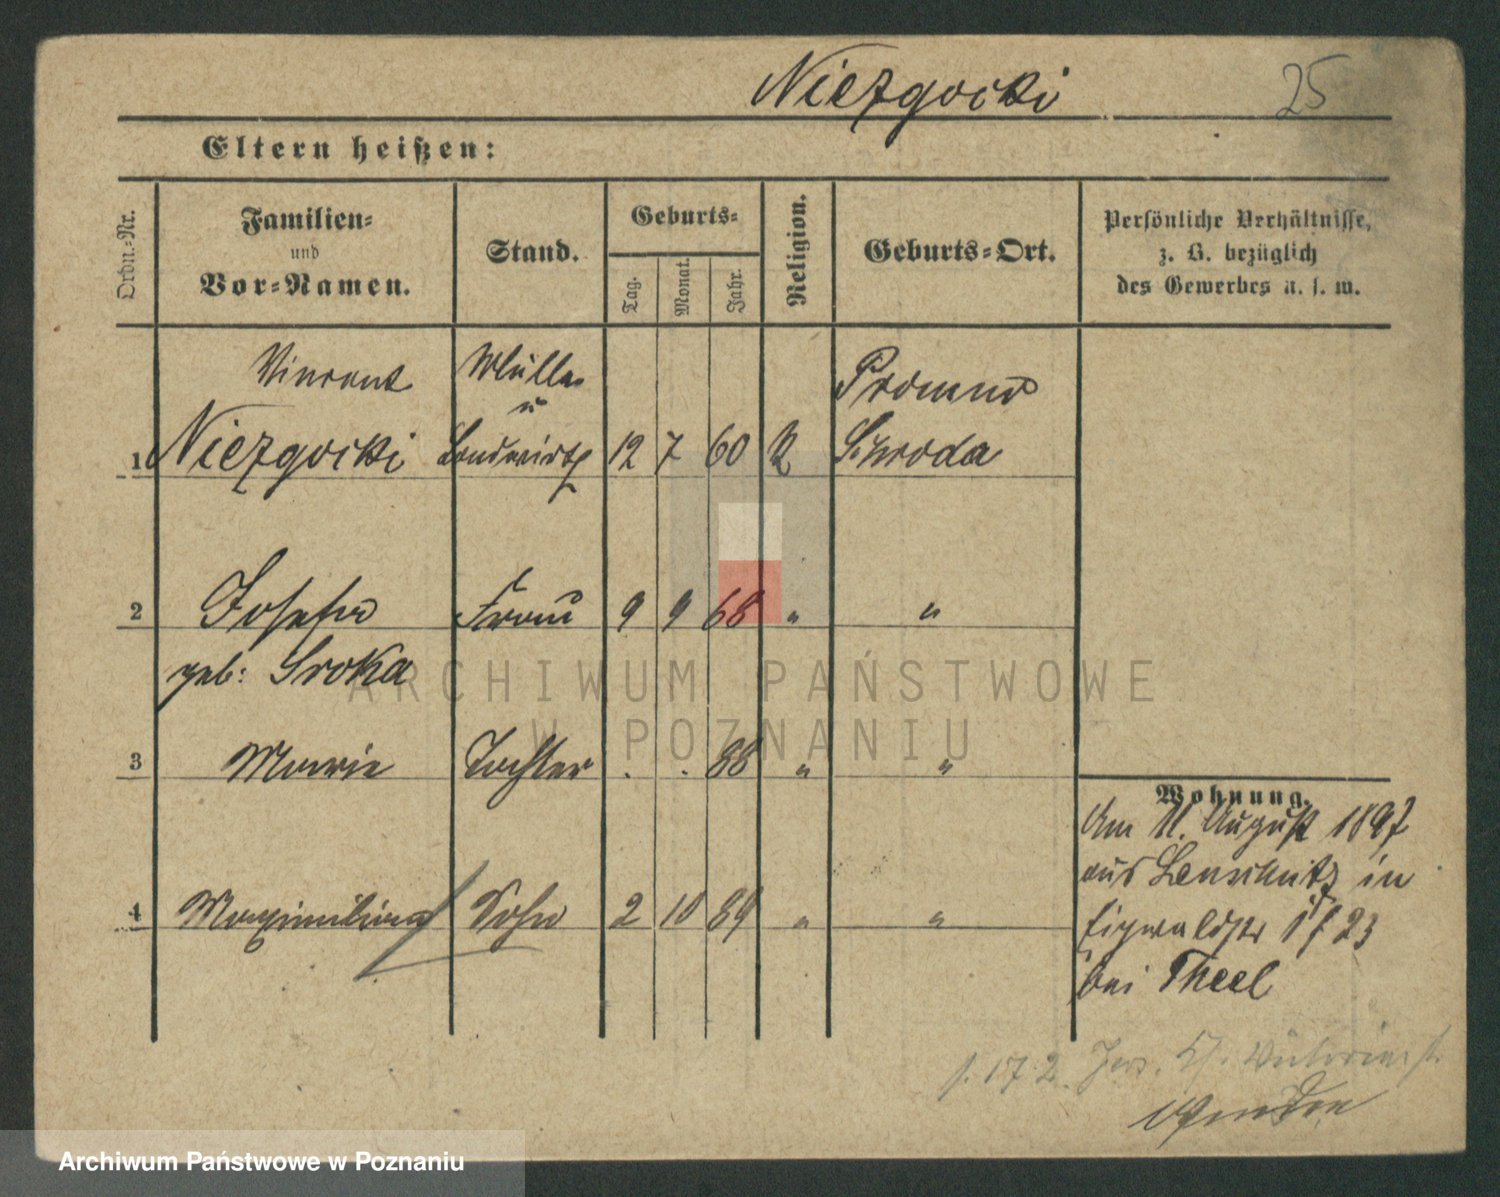 Niezgocki
25
Eltern heißen:
Ordn.-Nr.
Familien-
und
Vor-Namen.
Stand.
Geburts-
Tag.
Monat.
Jahr.
Religion.
Geburts-Ort.
Persönliche Verhältnisse,
z. B. bezüglich
des Gewerbes u. s. w.
Vincent Müller Promno
u
1 Niezgocki Landwirth 12 7 60 K Schroda
2 Josefa Frau 9 9 68 " "
geb: Sroka
3 Marie Tochter . . 88 " "
4 Maximilian Sohn 2 10 89 " "
Wohnung.
Am 11. August 1897
aus in
23
bei Theel
f. 17 2.
wenden
ARCHIWUM PAŃSTWOWE
W POZNANIU
Archiwum Państwowe w Poznaniu